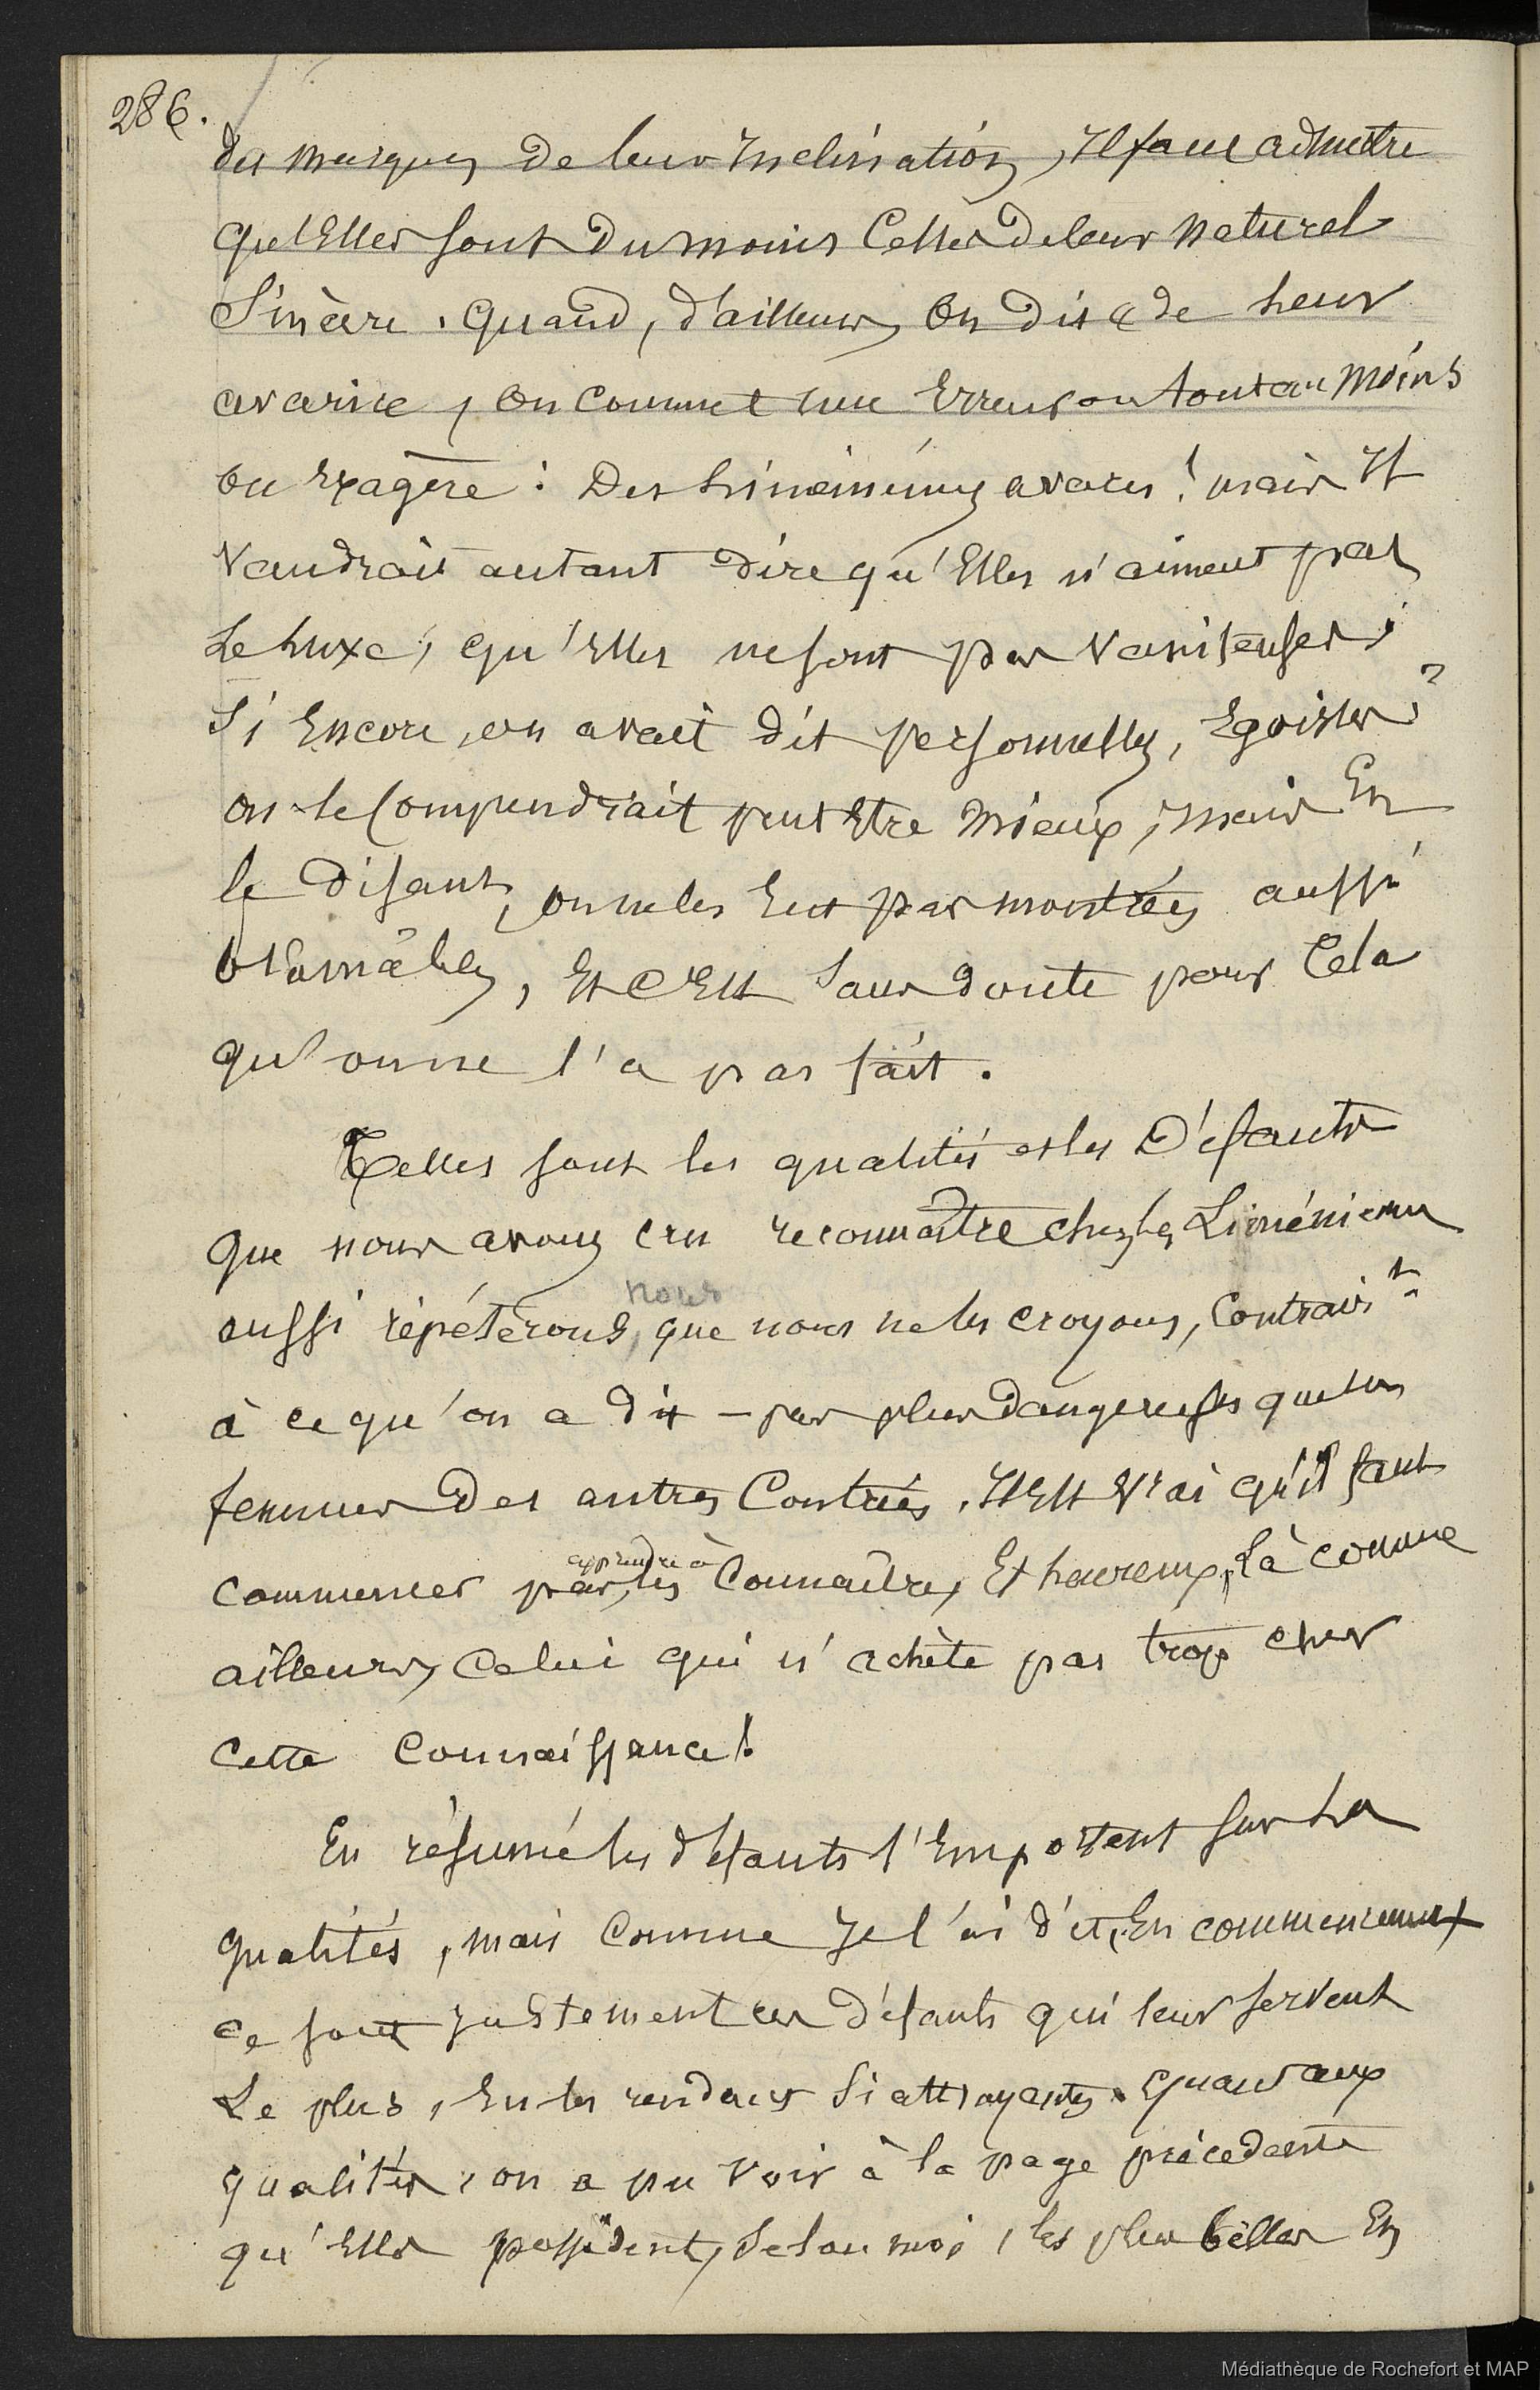 286.
des marques de leur Inclination, Il faut admettre
qu'Elles sont du moins Celles de leur naturel
Sincère. Quand, d'ailleurs, On dit de leur
avarice, On commet une Erreur ou tout au moins
on Exagère : Des Liméniennes avares ! mais Il
vaudrait autant dire qu'Elles n'aiment pas
Le Luxe, qu'Elles ne sont pas vaniteuses ;
Si Encore, on avait dit personnelles, Egoistes ?
on le Comprendrait peut Etre mieux, mais En
le disant, on ne les Eut pas montrées aussi
blamâbles, Et c'Est Sans doute pour Cela
qu'on ne l'a pas fait.
Telles sont les qualités et les Défauts
que nous avons cru reconnaître chez les Liméniennes
nous
aussi répéterons, que nous ne les croyons, Contrairt
à ce qu'on a dit - pas plus dangereuses que les
femmes des autres Contrées. Il Est Vrai qu'il faut
apprendre à
commencer par, les Connaître, Et heureux, Là comme
ailleurs, Celui qui n'achète pas trop cher
Cette Connaissance !
En résumé les défauts l'Emportent sur les
qualités, mais Comme Je l'ai dit, En commencement
ce sont Justement ces défauts qui leur servent
Le plus, En les rendant Si attrayantes. Quant aux
qualités, on a pu voir à la page précédente
qu'Elles possèdent, Selon moi, les plus belles En
Médiathèque de Rochefort et MAP